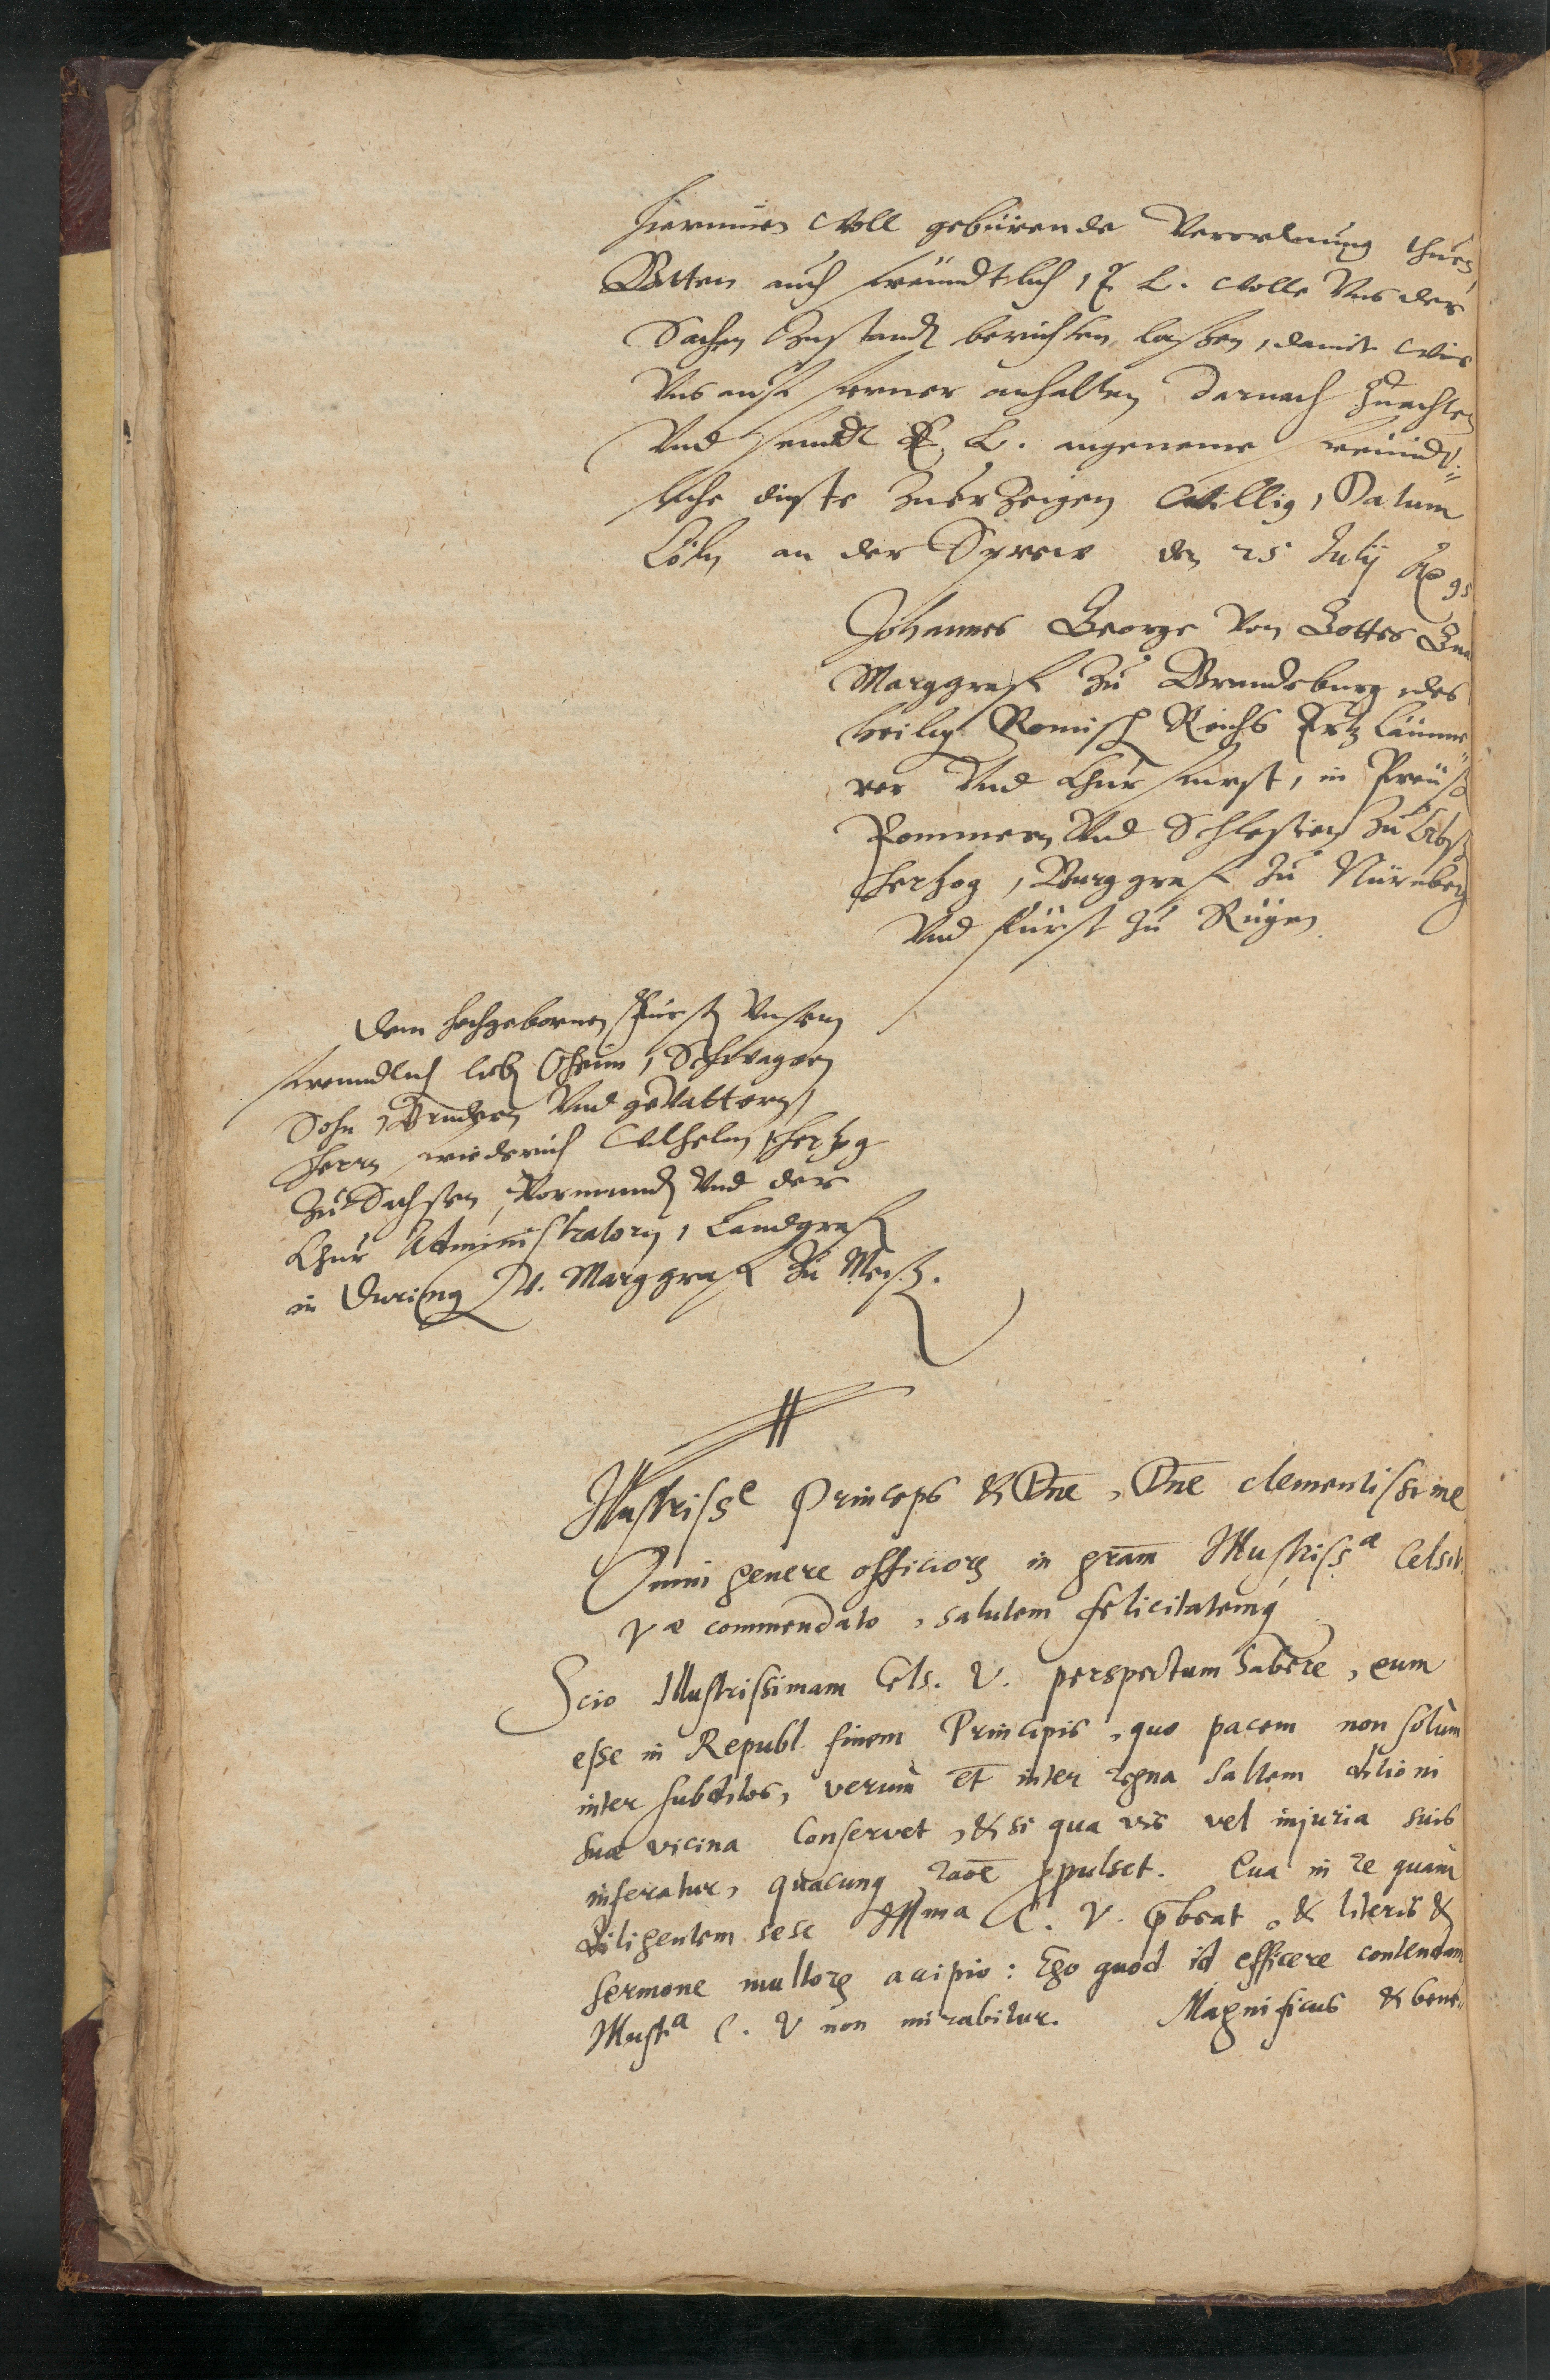 hierinnen woll gebürende Verordnung thuen
Bitten auch freundtlich, E L. wolle Uns der
Sachen Zustandt berichten laßen, damit wir
Uns auff ferner anhalten darnach zuachten
Und seindt E. L. angeneme freündt=
liche dinste zuerzeigen willig, Datum
Cöln an der Sprew den 25 Julij Ao 95
Johannes George von Gottes Gna
Marggraff zu Brandeburg, des
heilig Romisch Reichs Ertz Cämme=
rer Und Chur fürst, in Preuß
Pommern Und Schlesien zu Croß
Hertzog, Burggraff zu Nürnberg
Und fürst zu Rügen
Dem hochgebornen Fürst Unserm
freundlich lieb Oheim, Schwagern
Sohn, Brudern Und gevattern,
Herrn Friederich Wilhelm, Hertzog
zu Sachsen, Vormundt Und der
Chur Administratorn, Landgraff
in During V. Marggraff zu Meiß.
Illustrisse Princeps & Dne, Dne clementissime
Omni genere officiorꝫ in gram Illustrissa Celsit
Væ commendato, salutem felicitatemq
Scio Illustrissimam Cels. V. perspectum habere, eum
esse in Republ. finem Principis, quo pacem non solùm
inter subditos, verum et inter regna saltem ditioni
suæ vicina conservet, & si qua vis vel injuria suis
inferatur, quacunq raoe ꝓpulset. Qua in re quàm
diligentem sese Illma C. V. p̄beat, & literis &
sermone multorꝫ accipio: Ego quod id efficere contendam
Illusta C. V non mirabitur. Magnificus & bene=